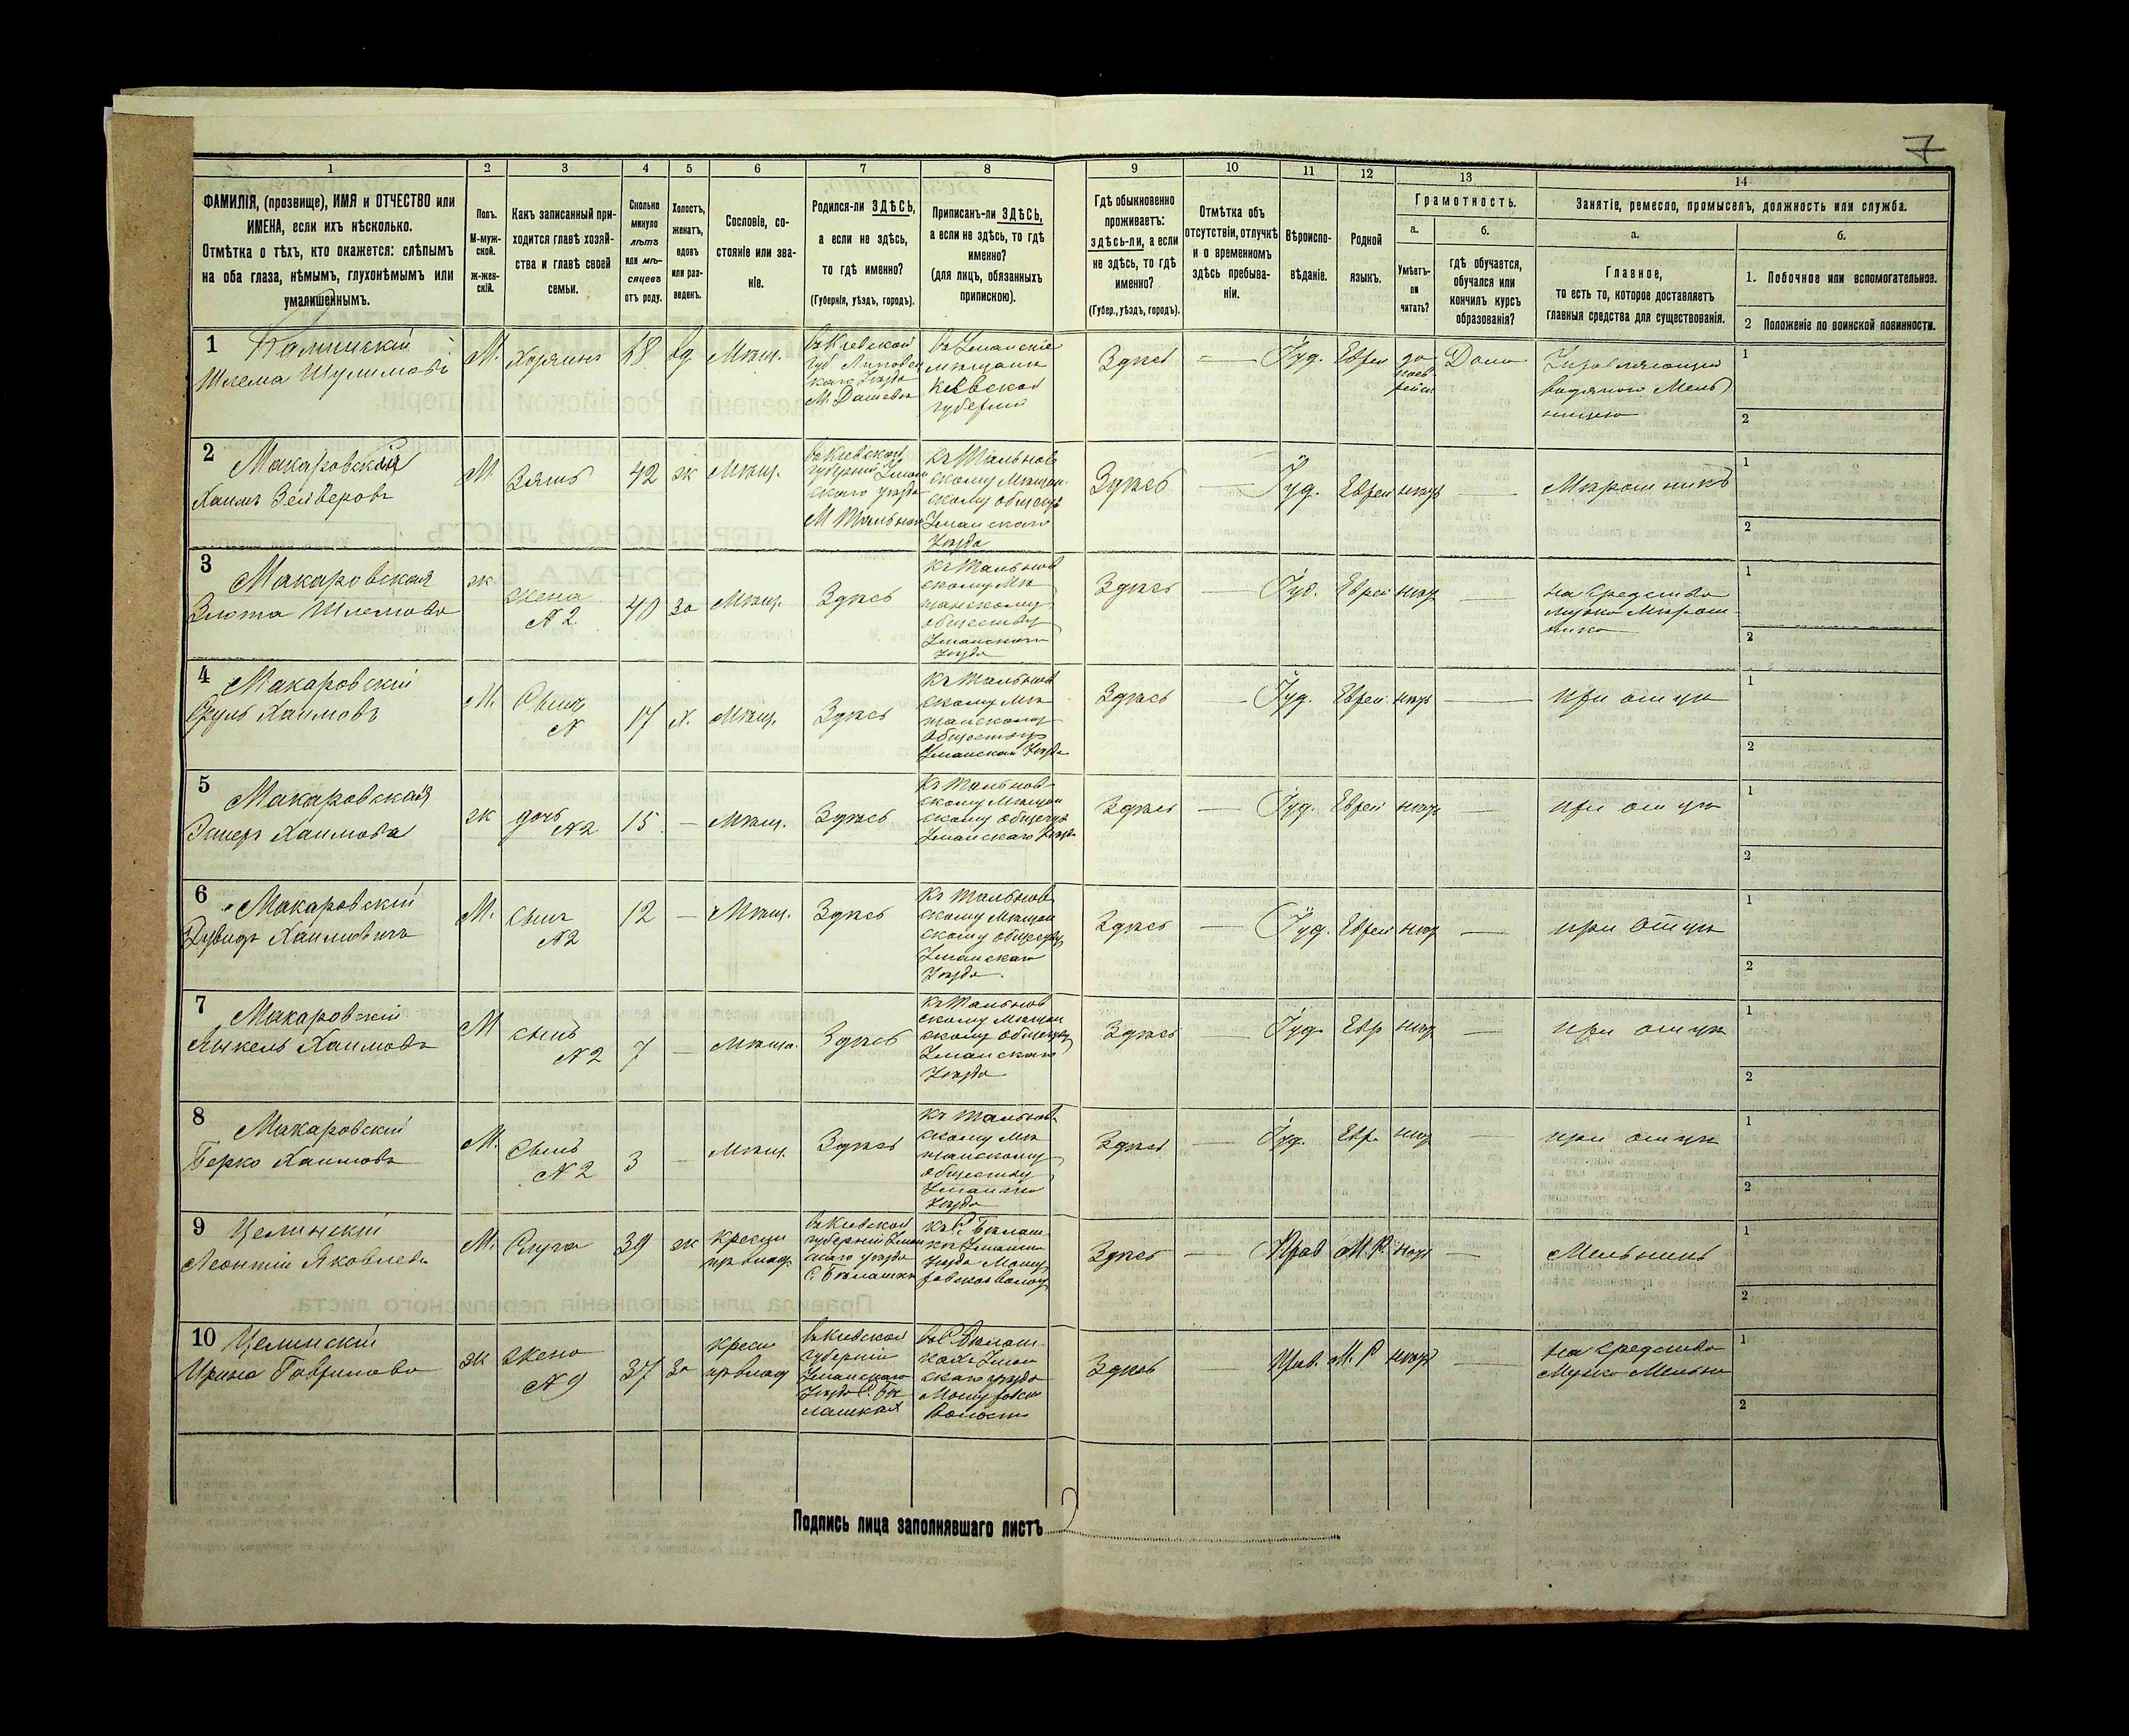 7
1 2 3 4 5 6 7 8 9 10 11 12 13 14
ФАМИЛІЯ, (прозвище), ИМЯ и ОТЧЕСТВО или
ИМЕНА, если ихъ нѣсколько.
Отмѣтка о тѣхъ, кто окажется: слѣпымъ
на оба глаза, нѣмымъ, глухонѣмымъ или
умалишеннымъ.
Полъ.
М-муж-
ской.
ж-жен-
скій.
Какъ записанный при-
ходится главѣ хозяй-
ства и главѣ своей
семьи.
Сколько
минуло
лѣтъ
или мѣ-
сяцевъ
отъ роду.
Холостъ,
женатъ,
вдовъ
или раз-
веденъ.
Сословіе, со-
стояніе или зва-
ніе.
Родился-ли ЗДѢСЬ,
а если не здѣсь,
то гдѣ именно?
(Губернія, уѣздъ, городъ).
Приписанъ-ли ЗДѢСЬ,
а если не здѣсь, то гдѣ
именно?
(для лицъ, обязанныхъ
припискою).
Гдѣ обыкновенно
проживаетъ:
здѣсь-ли, а если
не здѣсь, то гдѣ
именно?
(Губер., уѣздъ, городъ).
Отмѣтка объ
отсутствіи, отлучкѣ
и о временномъ
здѣсь пребыва-
ніи.
Вѣроиспо-
вѣданіе.
Родной
языкъ.
Грамотность.
а.
Умѣетъ-
ли
читать?
б.
гдѣ обучается,
обучался или
кончилъ курсъ
образованія?
Занятіе, ремесло, промыселъ, должность или служба.
а.
Главное,
то есть то, которое доставляетъ
главныя средства для существованія.
б.
1. Побочное или вспомогательное.
2 Положеніе по воинской повинности.
1
Шлема Шулимовъ
М. Хозяинъ вд Мѣщ.
въ Кіевской
губ Липовец
каго Уѣзда
М. Дашевъ
Кіевской
губерніи
Здѣсь — Іуд. Еврей да Дома
Управляющій
водяною Мель
ницею
1
2
2 Макаровскій
Хаимъ
М Зять 42 ж Мѣщ.
въ Кіевской
губерніи Уман
скаго уѣзда
М Тальное
Къ Тальнов
скому Мѣщан
скому обществу
Уманскаго
Уѣзда
Здѣсь — Іуд. Еврей нѣтъ — Мірошникъ
1
2
3 Макаровская
Злота Шлемова
ж жена
N 2. 40 за Мѣщ. Здѣсь
Къ Тальнов
скому Мѣ
щанскому
обществу
Уманскаго
Уѣзда
Здѣсь — Іуд. Еврей нѣтъ —
на средства
мужа Мірош-
ника
1
2
4 Макаровскій
Сруль Хаимовъ
М. Сынъ
N 17 х. Мѣщ. Здѣсь
Къ Тальнов
скому Мѣ
щанскому
Обществу
Уманскаго Уѣзда
Здѣсь — Іуд. Еврей нѣтъ — при отцѣ
1
2
5 Макаровская
Эстеръ Хаимова
ж дочь
N 2 15 — Мѣщ. Здѣсь
Къ Тальнов
скому Мѣщан
скому обществу
Уманскаго Уѣзда
Здѣсь — Іуд. Еврей нѣтъ — при отцѣ
1
2
6 Макаровскій
Дувидъ Хаимовичъ
М. сынъ
N 2 12 — Мѣщ. Здѣсь
Къ Тальнов
скому Мѣщан
скому обществу
Уманскаго
Уѣзда.
Здѣсь — Іуд. Еврей нѣтъ — при отцѣ
1
2
7 Макаровскій
Хаимовъ
М сынъ
N 2 7 — Мѣщ. Здѣсь
Къ Тальнов
скому Мѣщан
скому обществу
Уманскаго
Уѣзда
Здѣсь — Іуд. Евр нѣтъ — при отцѣ
1
2
8 Макаровскій
Берко Хаимовъ
М. Сынъ
N 2 3 — Мѣщ. Здѣсь
Къ Тальнов
скому Мѣ
щанскому
обществу
Уманскаго
Уѣзда
Здѣсь — Іуд. Евр. нѣтъ — при отцѣ
1
2
9 Целинскій
Леонтій Яковлевъ
М. Слуга 39 ж
въ Кіевской
губерніи Уман
скаго уѣзда
С. Бѣлашки
Здѣсь — Прав М.Р. нѣтъ — Мельникъ
1
2
10 Целинскій
Ирина Гаврилова
ж жена
N 9 37 за
въ Кіевской
губерніи
Уманскаго
Уѣзда С. Бѣ
лашкахъ
Здѣсь — Прав. М.Р нѣтъ —
на средства
Мужа
1
2
Подпись лица заполнявшаго листъ